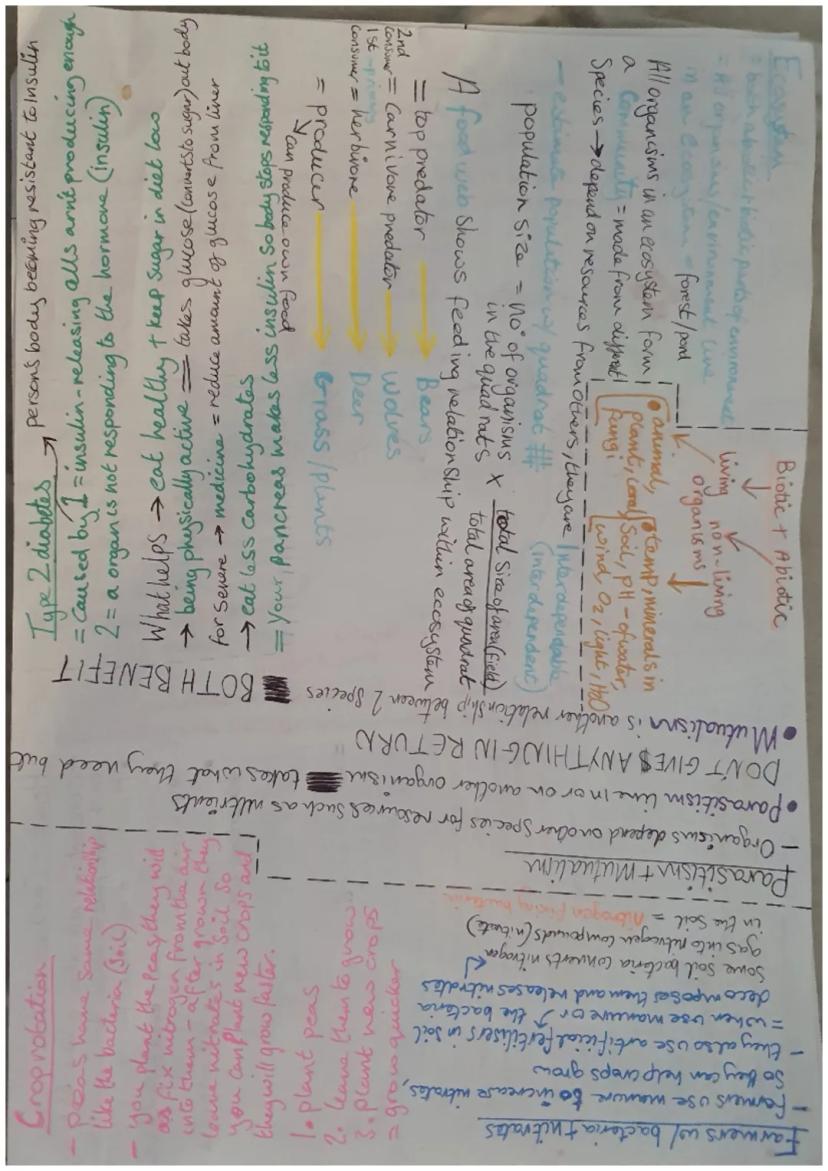 Ecosystem
= both abiotic + biotic parts of environment
= All organisms/environment live
in an ecosystem = forest/pond
All organisms in an ecosystem form
a community = made from different
Species → depend on resources from others, they are Interdependable
(interdependent)
- estimate population w/ quadrat #
population size = no° of organisms in the quadrats × total size of area (field)
total area of quadrat
A food web shows feeding relationship within ecosystem
= top predator → Bears
2nd consumer = carnivore predator → Wolves
1st - primary consumer = herbivore → Deer
= producer → Grass/plants
↳ can produce own food
Biotic + Abiotic
↓ ↓
living organisms
non-living
• animal, plant, coral, fungi
• temp, minerals in
Soil, pH - of water,
wind, O2, light, H2O
= Your pancreas makes less insulin so body stops responding to it
→ eat less carbohydrates
for severe → medicine = reduce amount of glucose from liver
→ being physically active = takes glucose (converts to sugar) out body
What helps → eat healthy + keep sugar in diet low
2 = a organ is not responding to the hormone (insulin)
= caused by 1 = insulin-releasing cells arn't producing enough
Type 2 diabetes → persons body beeming resistant to insulin
Parasitism + Mutualism
- Organisms depend on another species for resources such as nutrients
• Parasitism live in or on another organism takes what they need but
DON'T GIVES ANYTHING IN RETURN
• Mutualism is another relationship between 2 species
BOTH BENEFIT
Farmers w/ bacteria + nitrates
- Farmers use manure to increase nitrates,
so they can help crops grow
- they also use artificial fertilisers in soil
= when use manure or ↑ the bacteria
decomposes them and releases nitrates
some soil bacteria converts nitrogen
gas into nitrogen compounds (nitrate)
in the soil = Nitrogen fixing bacteria
Crop rotation
- peas have same relationship
like the bacteria (soil)
- you plant the peas, they will
as fix nitrogen from the air
into them - after grown they
leave nitrates in soil so
you can plant new crops and
they will grow faster.
1. plant peas
2. leave them to grow
3. plant new crops
= grow quicker